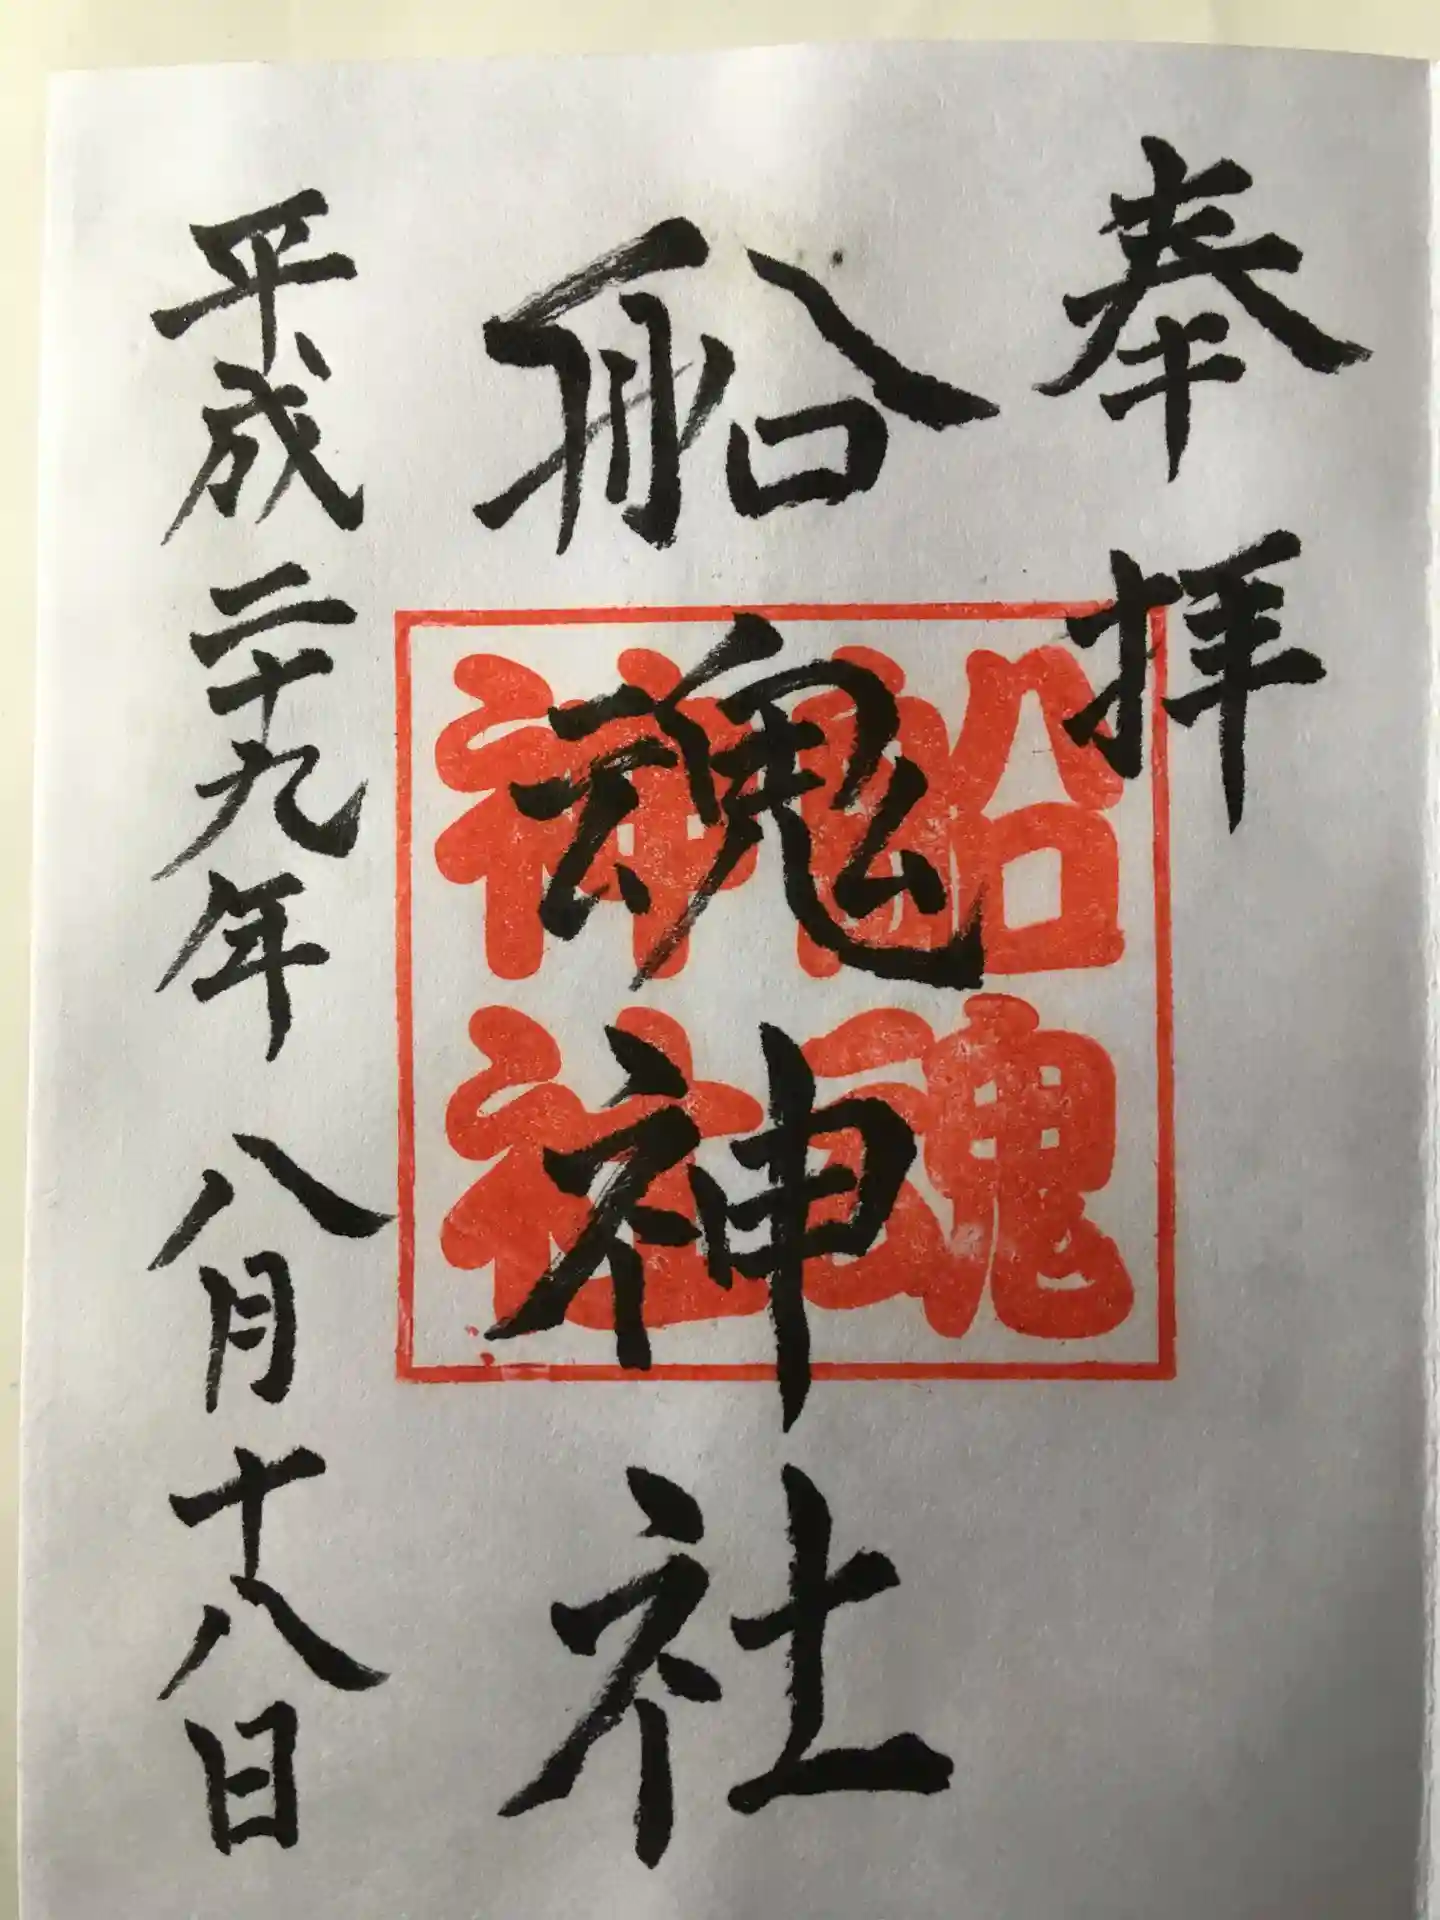 奉拝
船魂神社
船魂
神社
平成二十九年八月十八日